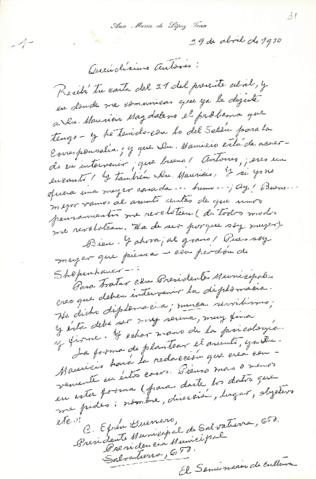 31
Ana María de López Tena
-1-
29 de abril de 1970
Queridísimo Antonio:
Recibí tu carta del 21 del presente abril, y
en donde me comunicas que ya le dijiste
a Dn. Mauricio Magdaleno el problema que
tengo - y he tenido con lo del Salón para la
Corresponsalía; y que Dn. Mauricio está de acuer-
do en intervenir, que bueno! Antonio, ¡eres un
encanto! Y también Dn. Mauricio. Y si yo no
fuera una mujer casada... hum...; Ay! Bueno...
mejor vamos al asunto antes de que unos
pensamientos me revoloteen (de todos modos
me revolotean. Ha de ser porque soy mujer).
Bien. Y ahora, ¡al grano! Pues soy
mujer que piensa - con perdón de
Shopenhauer -:
Para tratar con Presidentes Municipales
creo que deben intervenir la diplomacia.
No dicha diplomacia: nunca servilismo;
y ésta debe ser muy serena, muy fina
y firme. Y echar mano de la psicología.
La forma de plantear el asunto, ya Dn.
Mauricio hará la redacción que crea con-
veniente en estos casos. Pienso mas o menos
en esta forma (para darte los datos que
me pides: nombre, dirección, lugar, objetivo
etc.:
C. Efrén Guerrero,
Presidente Municipal de Salvatierra, Gto.
Presidencia Municipal
Salvatierra, Gto.
El Seminario de Cultura